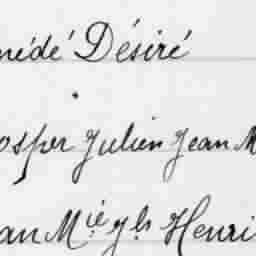 médé Désiré
osper Julien Jean M
an Mie
Henri